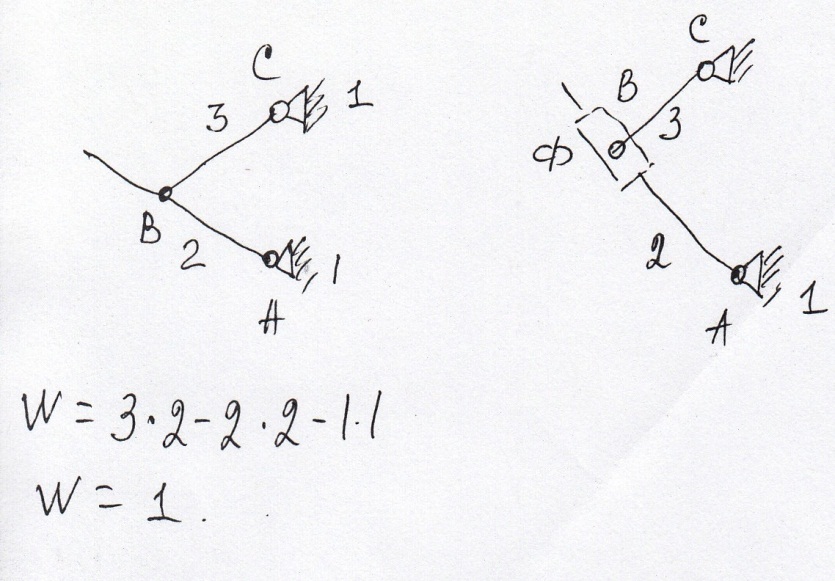 C
3
1
B
2
1
A
C
B
3
Ф
2
1
A
W = 3·2-2·2-1·1
W = 1.